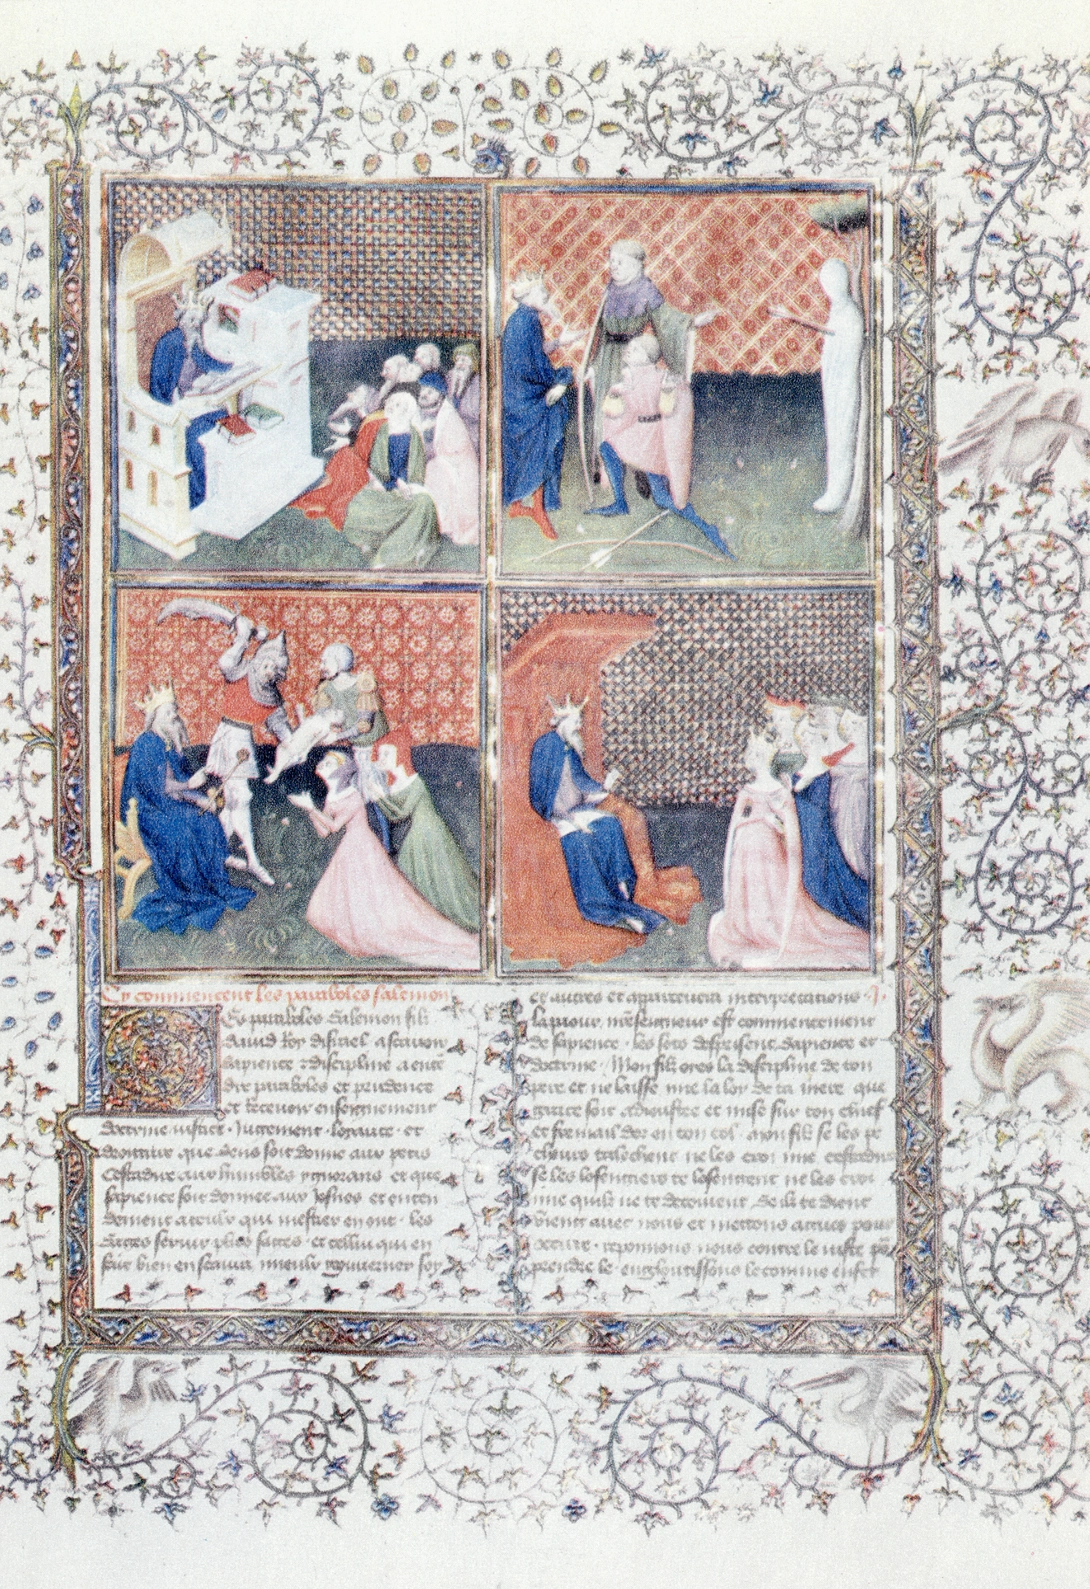 Cy commencent les paraboles salemon
Es paraboles Salemon filz
dauid Roy disrael a scauoir
sapience discipline a ente
dre paraboles et prudence
et receuoir enseignement
doctrine iustice . Jugement . loyaute . et
que dieus soit donne aux petis
Cestadire aux humbles ygnorans et que
sapience soit donnee aux Jesnes et enten
dement a ceulx qui mestier en ont . les
sages et cellui qui en
scet bien en scaura mieulx gouuerner soy
et autres et interpretacions .
La paour nreseigneur est commencement
de sapience . les folz desprisent Sapience et
doctrine . Mon filz ores la discipline de ton
pere et ne laisse mie la loy de ta mere que
grace soit adioustee et mise sur ton chief
et fermail dor en ton col . mon filz se les pe
cheurs talechent ne les croi mie cestadire
se les losengiers te losengent ne les croi
mie quilz ne te decoiuent . Se ilz te dient
vient auec nous et mettons aguez pour
occire . reponnons nous contre le iuste
prendre le . engloutissons le comme enfer